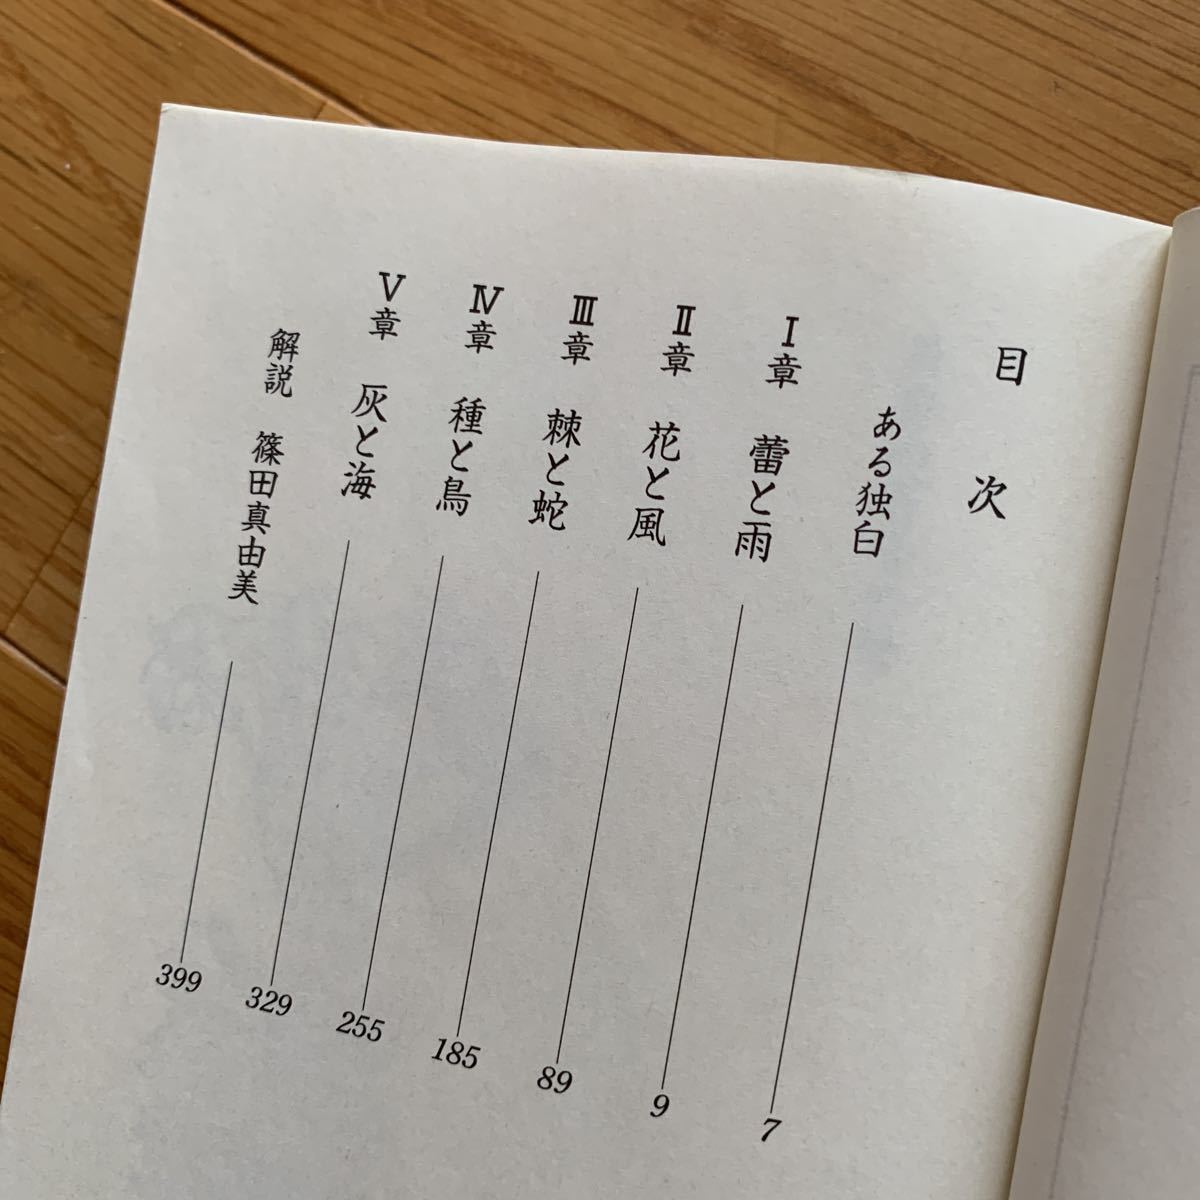 目次
ある独白 7
Ⅰ章 蕾と雨 9
Ⅱ章 花と風 89
Ⅲ章 棘と蛇 185
Ⅳ章 種と鳥 255
Ⅴ章 灰と海 329
解説 篠田真由美 399